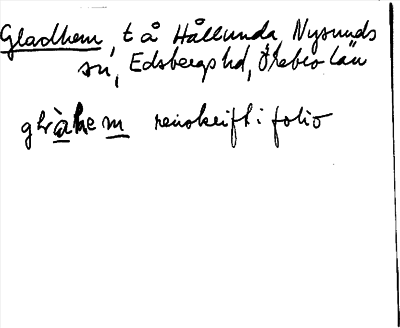 Gladhem, t å Hållunda, Nysunds
sn, Edsbergs hd, Örebro län
glàhem renskrift i folio